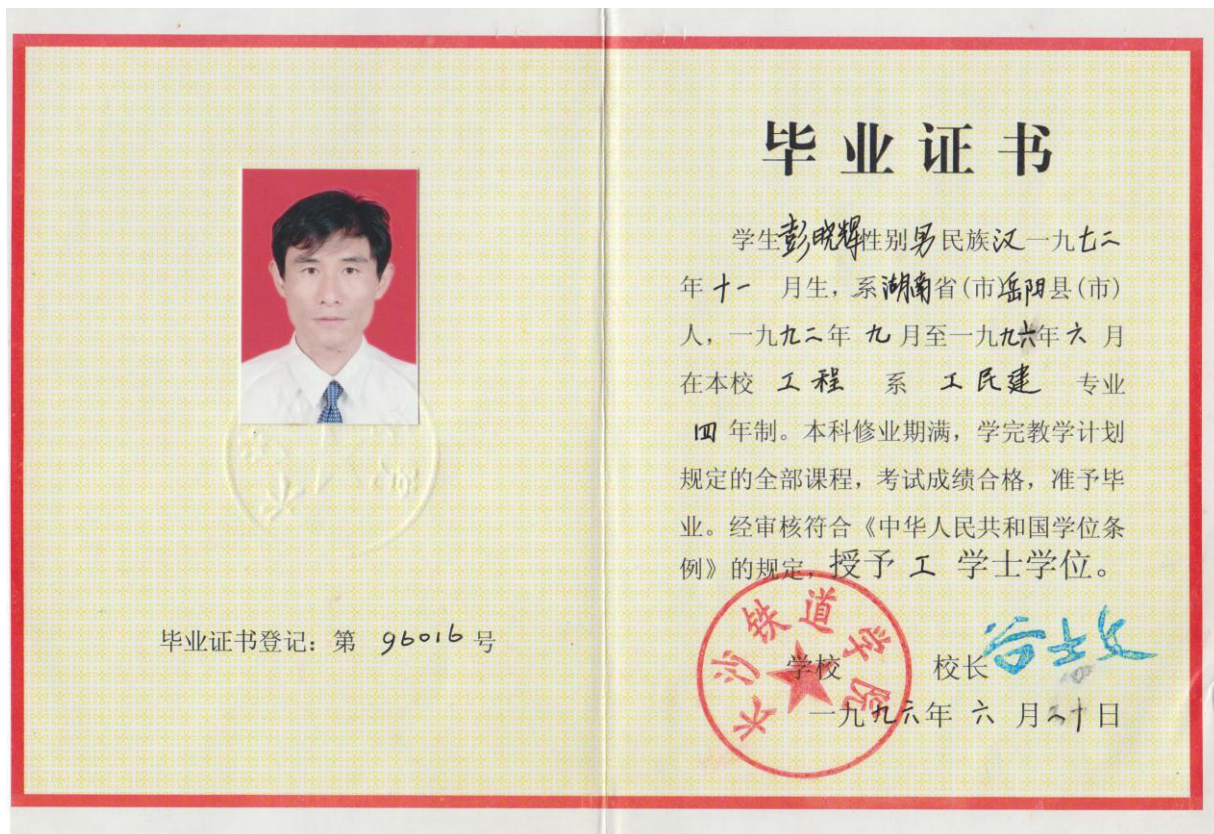 毕业证书登记：第 96016 号
毕业证书
学生彭晓辉性别男民族汉一九七二
年十一 月生，系湖南省(市)岳阳县(市)
人，一九九二年 九 月至一九九六年六 月
在本校 工程 系 工民建 专业
四 年制。本科修业期满，学完教学计划
规定的全部课程，考试成绩合格，准予毕
业。经审核符合《中华人民共和国学位条
例》的规定，授予 工 学士学位。
长沙铁道学院
学校 校长
一九九六年 六 月 日